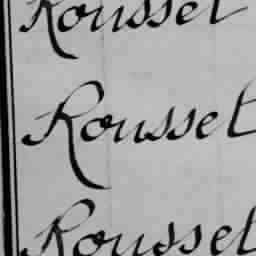 Rousset
Rousset
Rousset